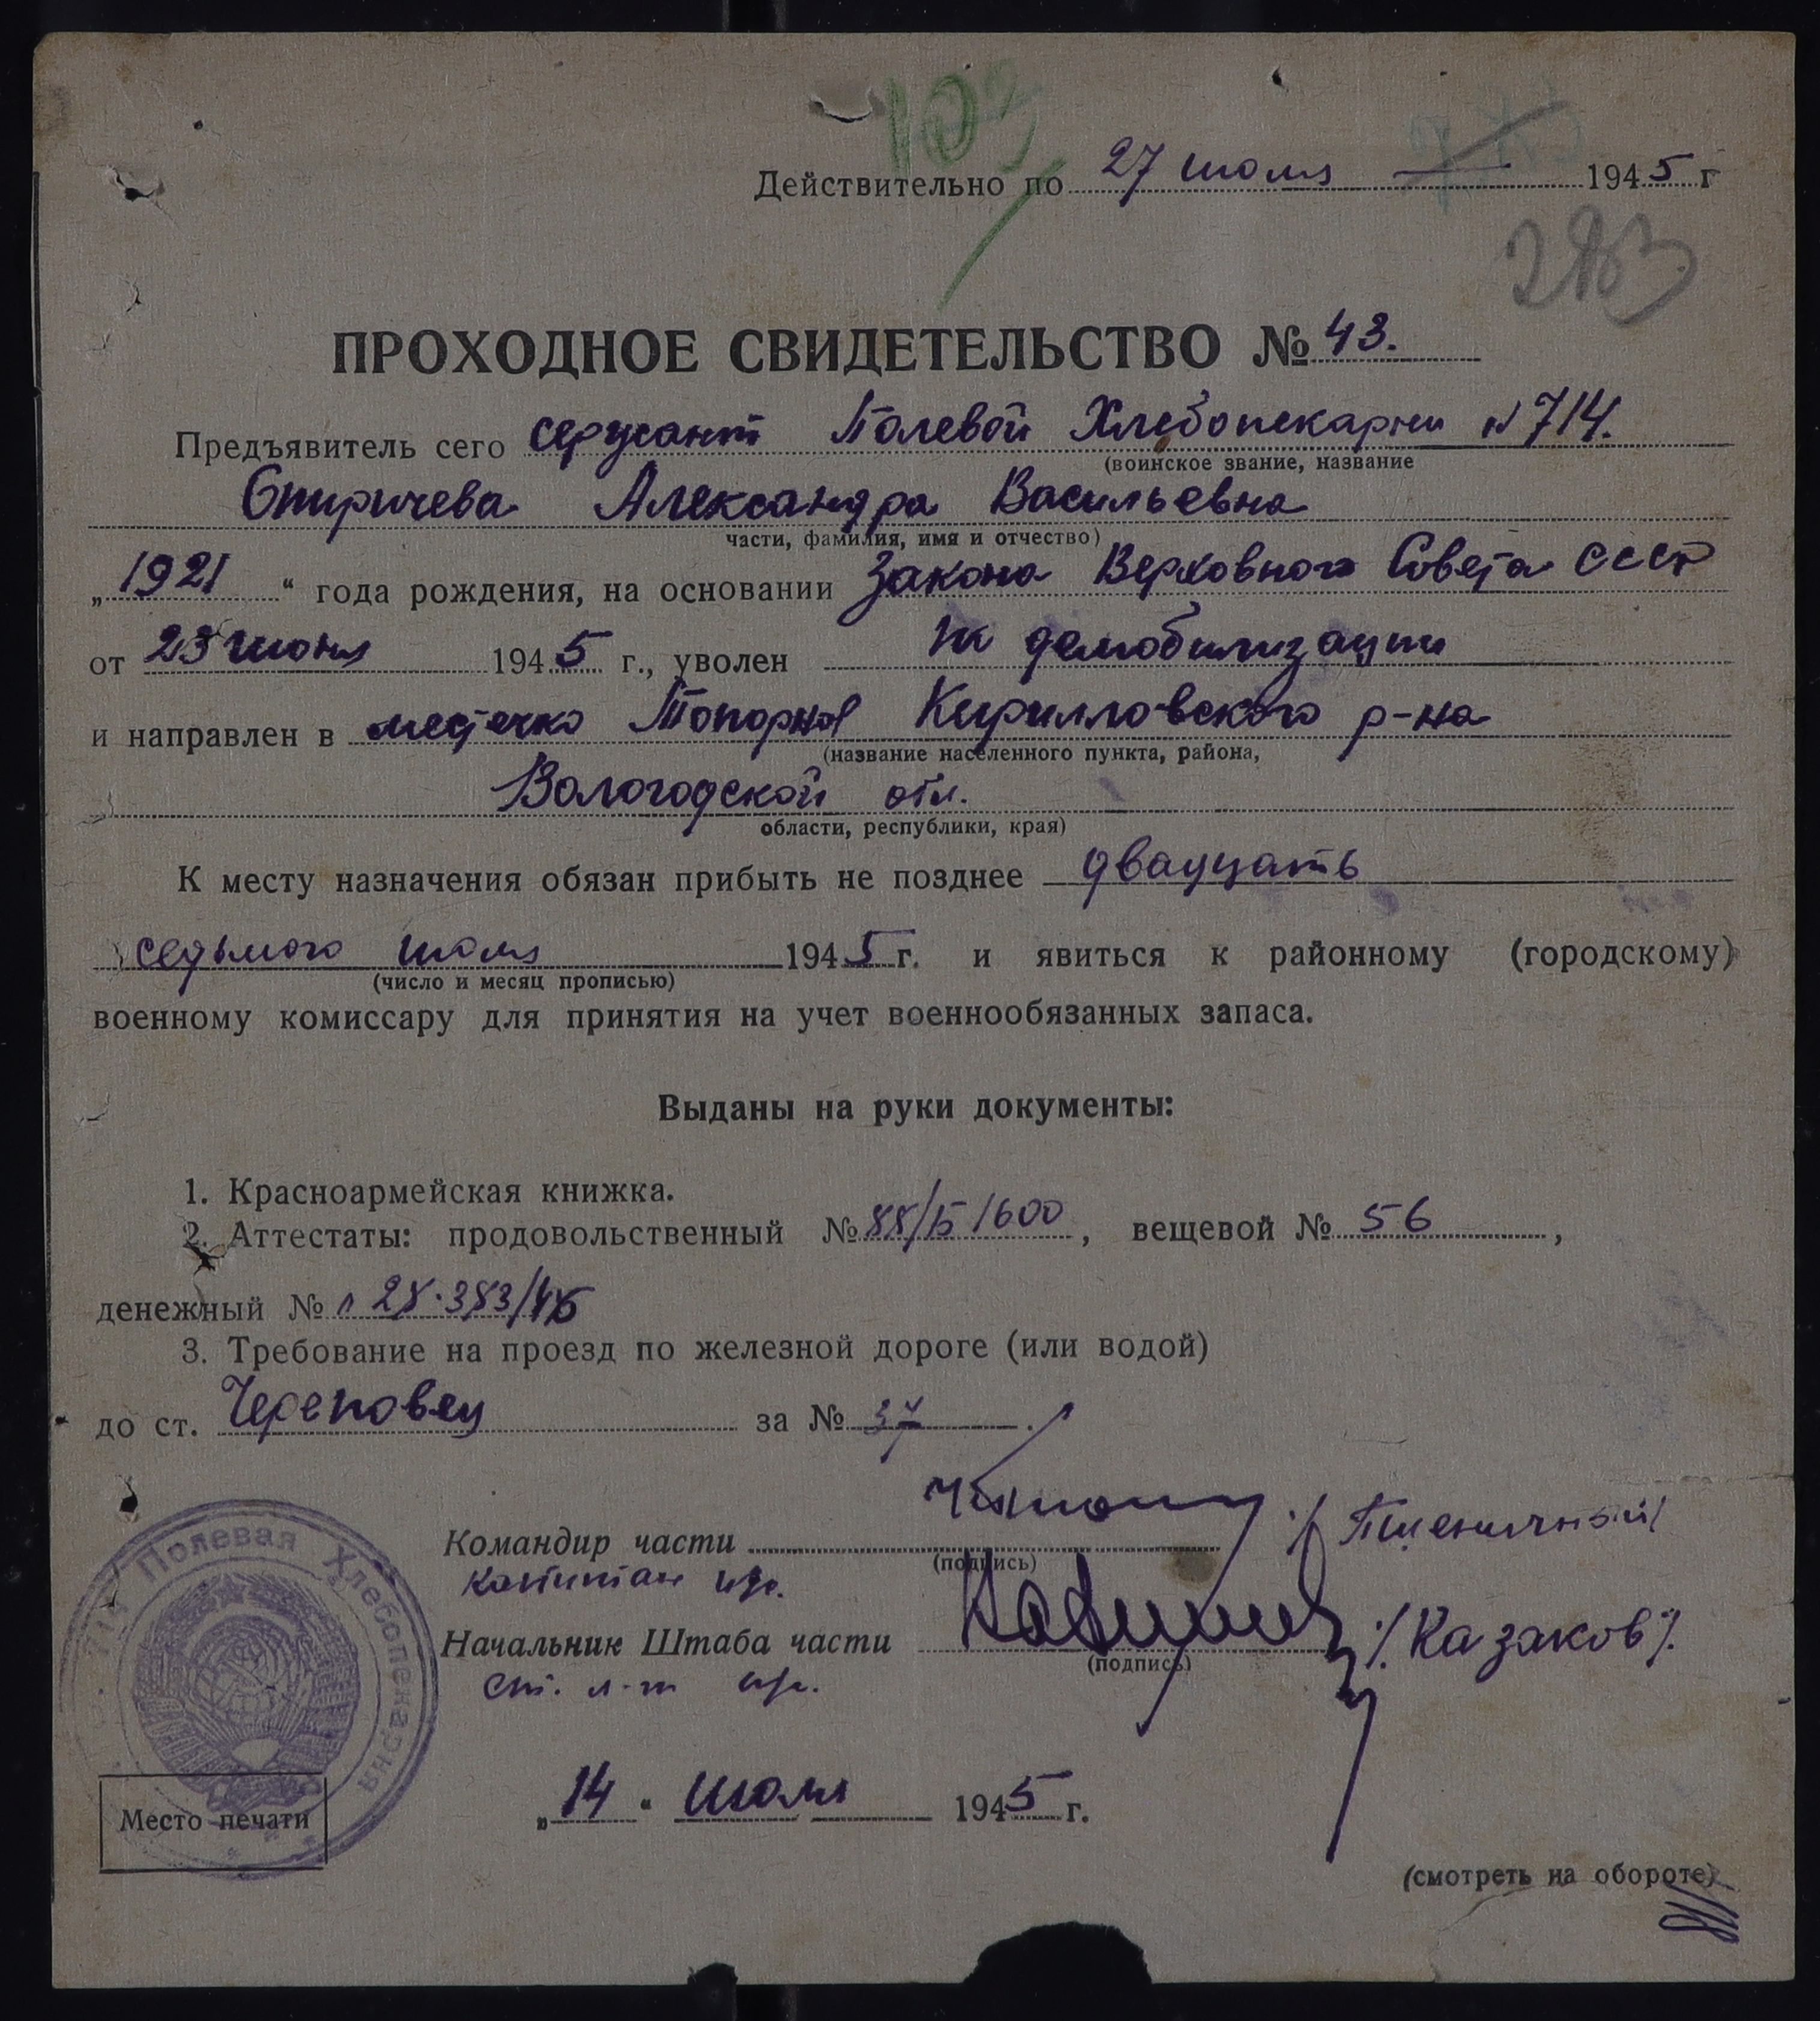 103
Действительно по 27 июля 1945 г
283
ПРОХОДНОЕ СВИДЕТЕЛЬСТВО № 43.
Предъявитель сего сержант Полевой Хлебопекарни №714.
(воинское звание, название
Спиричева Александра Васильевна
части, фамилия, имя и отчество)
„1921“ года рождения, на основании Закона Верховного Совета СССР
от 23 июня 1945 г., уволен по демобилизации
и направлен в местечко Топорня Кирилловского р-на
(название населенного пункта, района,
Вологодской обл.
области, республики, края)
К месту назначения обязан прибыть не позднее двадцать
седьмого июля 1945 г. и явиться к районному (городскому)
(число и месяц прописью)
военному комиссару для принятия на учет военнообязанных запаса.
Выданы на руки документы:
1. Красноармейская книжка.
2. Аттестаты: продовольственный № 88/15/600, вещевой № 56,
денежный №
3. Требование на проезд по железной дороге (или водой)
до ст. Череповец за № 37.
Командир части /Пшеничный/
(подпись)
капитан и/с.
Начальник Штаба части /Казаков/.
(подпись)
ст. л-т и/с.
714 Полевая Хлебопекарня
Место печати
„14“ июля 1945 г.
(смотреть на обороте)